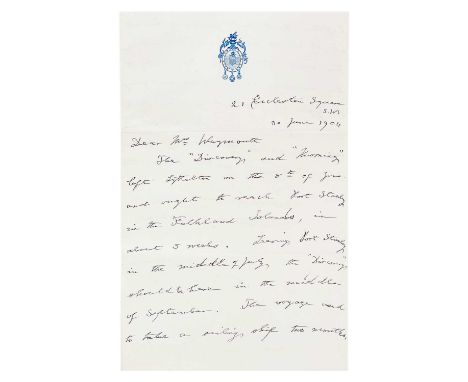 21 Eccleston Square
S.W.
20 June 1904
Dear Mrs Waymouth
The "Discovery" and "Morning"
left Lyttelton on the 8th of June
and ought to reach Port Stanley
in the Falkland Islands, in
about 5 weeks. Leaving Port Stanley
in the middle of July, the "Discovery"
should be home in the middle
of September. The voyage used
to take a sailing ship two months,